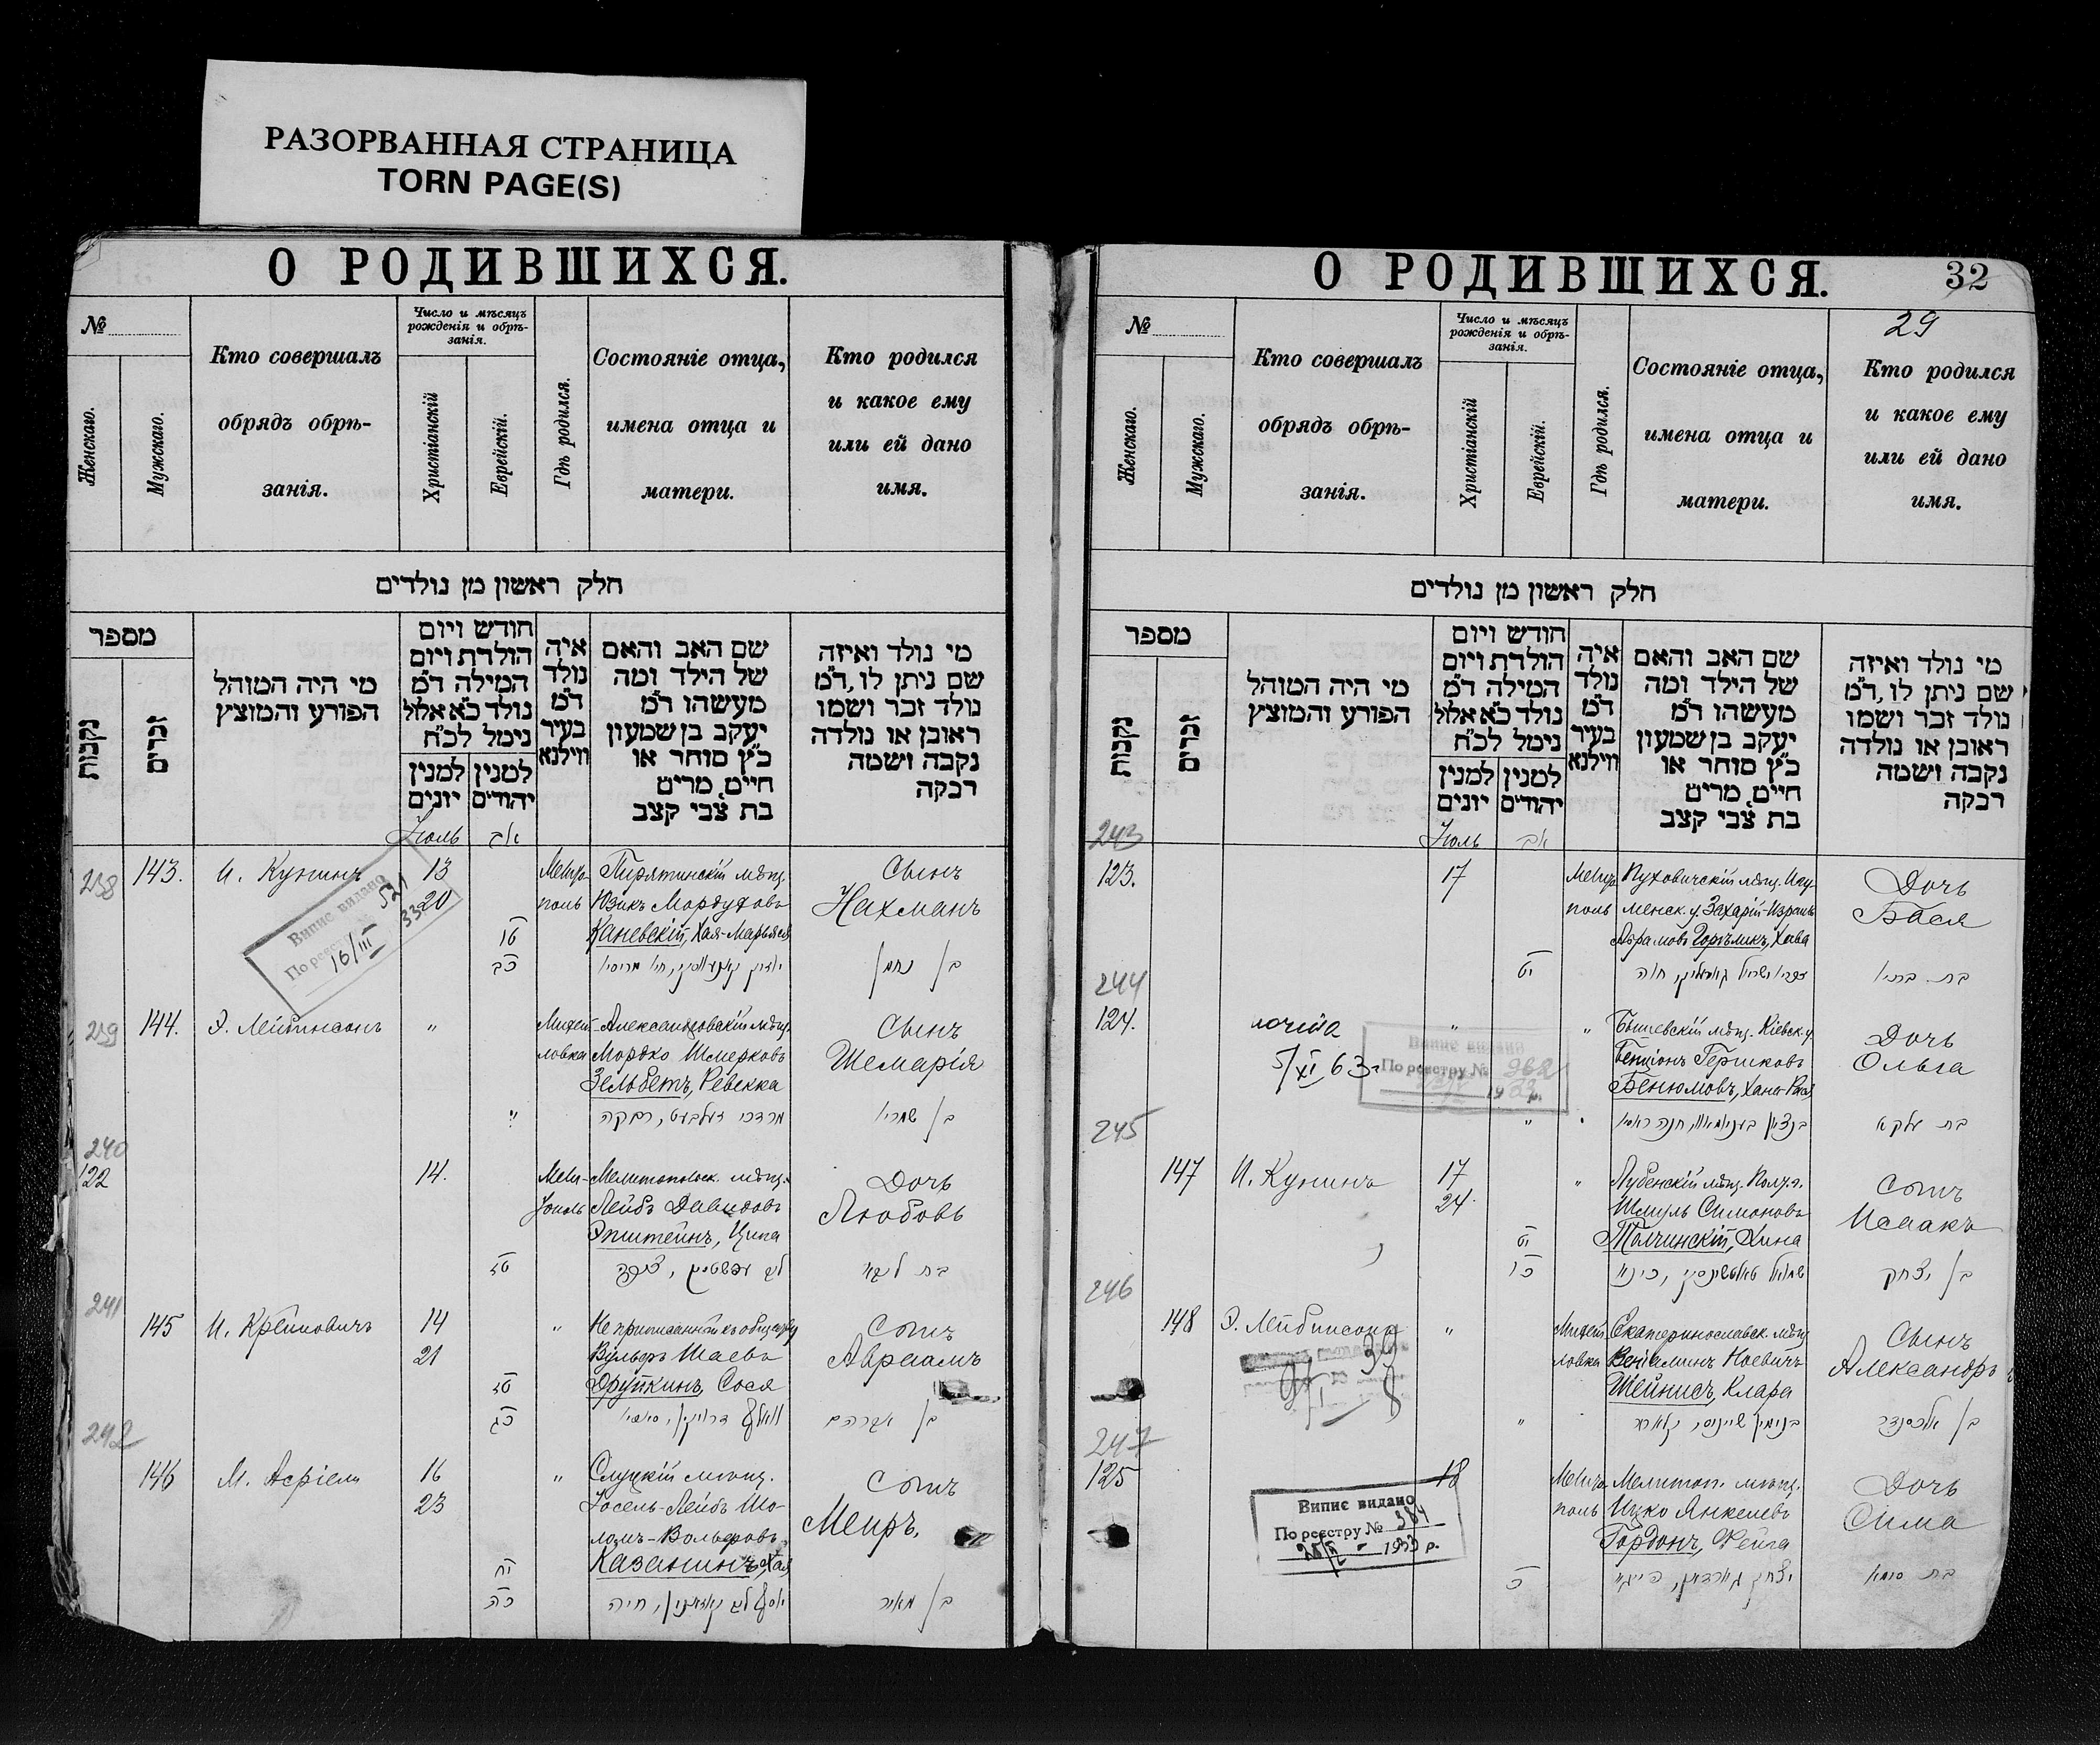 РАЗОРВАННАЯ СТРАНИЦА
TORN PAGE(S)
О РОДИВШИХСЯ.
№
Женскаго.
Мужскаго.
Кто совершалъ
обрядъ обрѣ-
занія.
Число и мѣсяцъ
рожденія и обрѣ-
занія.
Христіанскій
Еврейскій.
Гдѣ родился.
Состояніе отца,
имена отца и
матери.
Кто родился
и какое ему
или ей дано
имя.
חלק ראשון מן נולדים
מספר
נקבות
זכרים
מי היה המוהל
הפורע והמוצץ
חודש ויום
הולדת ויום
המילה ד״מ
נולד כ״א אלול
נימל לכ״ח
למנין
יונים
למנין
יהודים
איה
נולד
ד״מ
בעיר
ווילנא
שם האב והאם
של הילד ומה
מעשהו ד״מ
יעקב בן שמעון
כ״ץ סוחר או
חיים, מרים
בת צבי קצב
מי נולד ואיזה
שם ניתן לו, ד״מ
נולד זכר ושמו
ראובן או נולדה
נקבה ושמה
רבקה
Іюль
אב
238
143.
И. Кунинъ
13
20
טו
כב
Пирятинскій мѣщ.
Юзикъ Мордуховъ
Каневскій, Хая-
Сынъ
Нахманъ
בן נחמן
Випис видано
16/III
239
144.
Э. Лейбинсонъ
"
Александровскій мѣщ.
Мордко Шмерковъ
Зельбетъ, Ревекка
Сынъ
Шемарія
בן שמריו
240
122
14.
טז
Мелитопольск. мѣщ.
Лейбъ Давидовъ
Эпштейнъ, Ципа
Дочь
Любовь
241
145
14
21
טז
כג
"
Не приписанный къ обществу
Вульфъ Шаевъ
Сося
Сынъ
Авраамъ
בן אברהם
242
146
16
23
יח
כה
"
Слуцкій мѣщ.
Іосель-Лейбъ Шо-
ломъ-Вольфовъ
Казанинъ, Хая
Сынъ
Меиръ.
בן מאיר
О РОДИВШИХСЯ.
32
29
№
Женскаго.
Мужскаго.
Кто совершалъ
обрядъ обрѣ-
занія.
Число и мѣсяцъ
рожденія и обрѣ-
занія.
Христіанскій
Еврейскій.
Гдѣ родился.
Состояніе отца,
имена отца и
матери.
Кто родился
и какое ему
или ей дано
имя.
חלק ראשון מן נולדים
מספר
נקבות
זכרים
מי היה המוהל
הפורע והמוצץ
חודש ויום
הולדת ויום
המילה ד״מ
נולד כ״א אלול
נימל לכ״ח
למנין
יונים
למנין
יהודים
איה
נולד
ד״מ
בעיר
ווילנא
שם האב והאם
של הילד ומה
מעשהו ד״מ
יעקב בן שמעון
כ״ץ סוחר או
חיים, מרים
בת צבי קצב
מי נולד ואיזה
שם ניתן לו, ד״מ
נולד זכר ושמו
ראובן או נולדה
נקבה ושמה
רבקה
Іюль
אב
243
123.
17
יט
Пуховичскій мѣщ. Игу-
менск. у. Захарій-Израиль
Абрамовъ Горѣликъ, Хава
Дочь
Бася
244
124.
5/XI 63
Випис видано
По реєстру №
"
"
мѣщ. Кіевск. у.
Бенціонъ Гершковъ
Бенюмовъ, Хана-
Дочь
Ольга
245
147
И. Кунинъ
17
24.
יט
כו
"
Лубенскій мѣщ. Полт. г.
Шмуль Симоновъ
Толчинскій, Хина
Сынъ
Исаакъ
בן יצחק
246
148
Э. Лейбинсонъ
39
"
Екатеринославск. мѣщ
Веніаминъ Ноевичъ
Шейнисъ, Клара
Сынъ
Александръ
בן אלכסנדר
247
125
Випис видано
По реєстру № 384
1939 р.
18
כ
Мелитоп. мѣщ.
Ицко Янкелевъ
Гордонъ, Фейга
Дочь
Сима
בת סימא